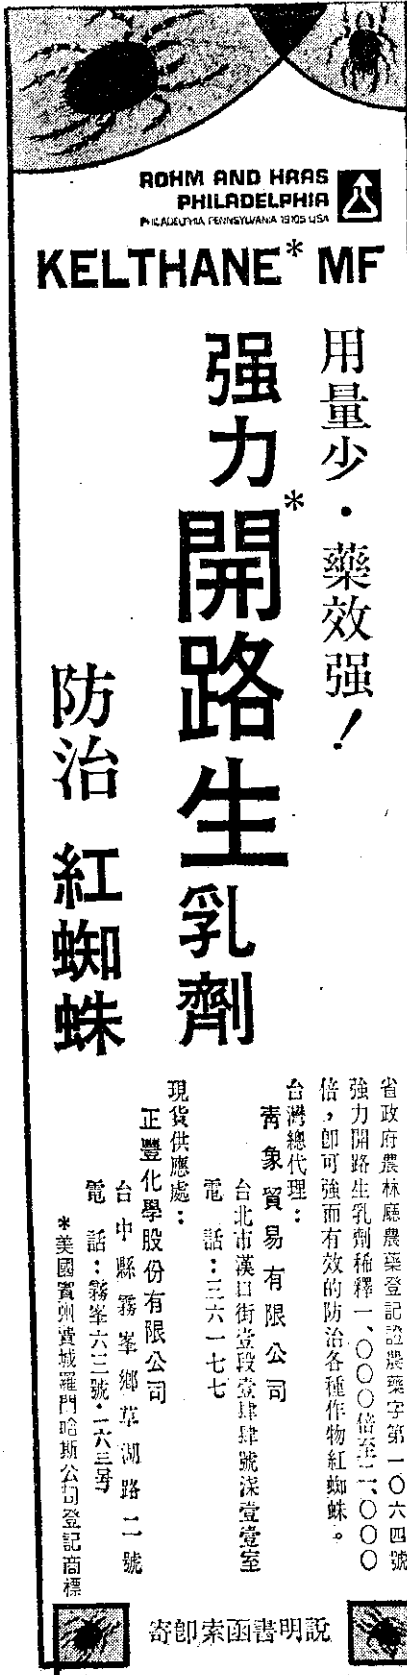 ROHM AND HAAS
PHILADELPHIA
PHILADELPHIA PENNSYLVANIA 19105 USA
KELTHANE* MF
用量少·藥效强!
强力開路生*乳劑
防治 紅蜘蛛
省政府農林廳農藥登記證農藥字第一〇六四號
強力開路生乳劑稀釋一、〇〇〇倍至二、〇〇〇
倍，即可強而有效的防治各種作物紅蜘蛛。
台灣總代理：
青象貿易有限公司
台北市漢口街壹段壹肆肆號深壹壹室
電話：三六一七七
現貨供應處：
正豐化學股份有限公司
台中縣霧峯鄉草湖路二號
電話：霧峯六三號·一六三號
*美國賓州費城羅門哈斯公司登記商標
寄即索函書明說